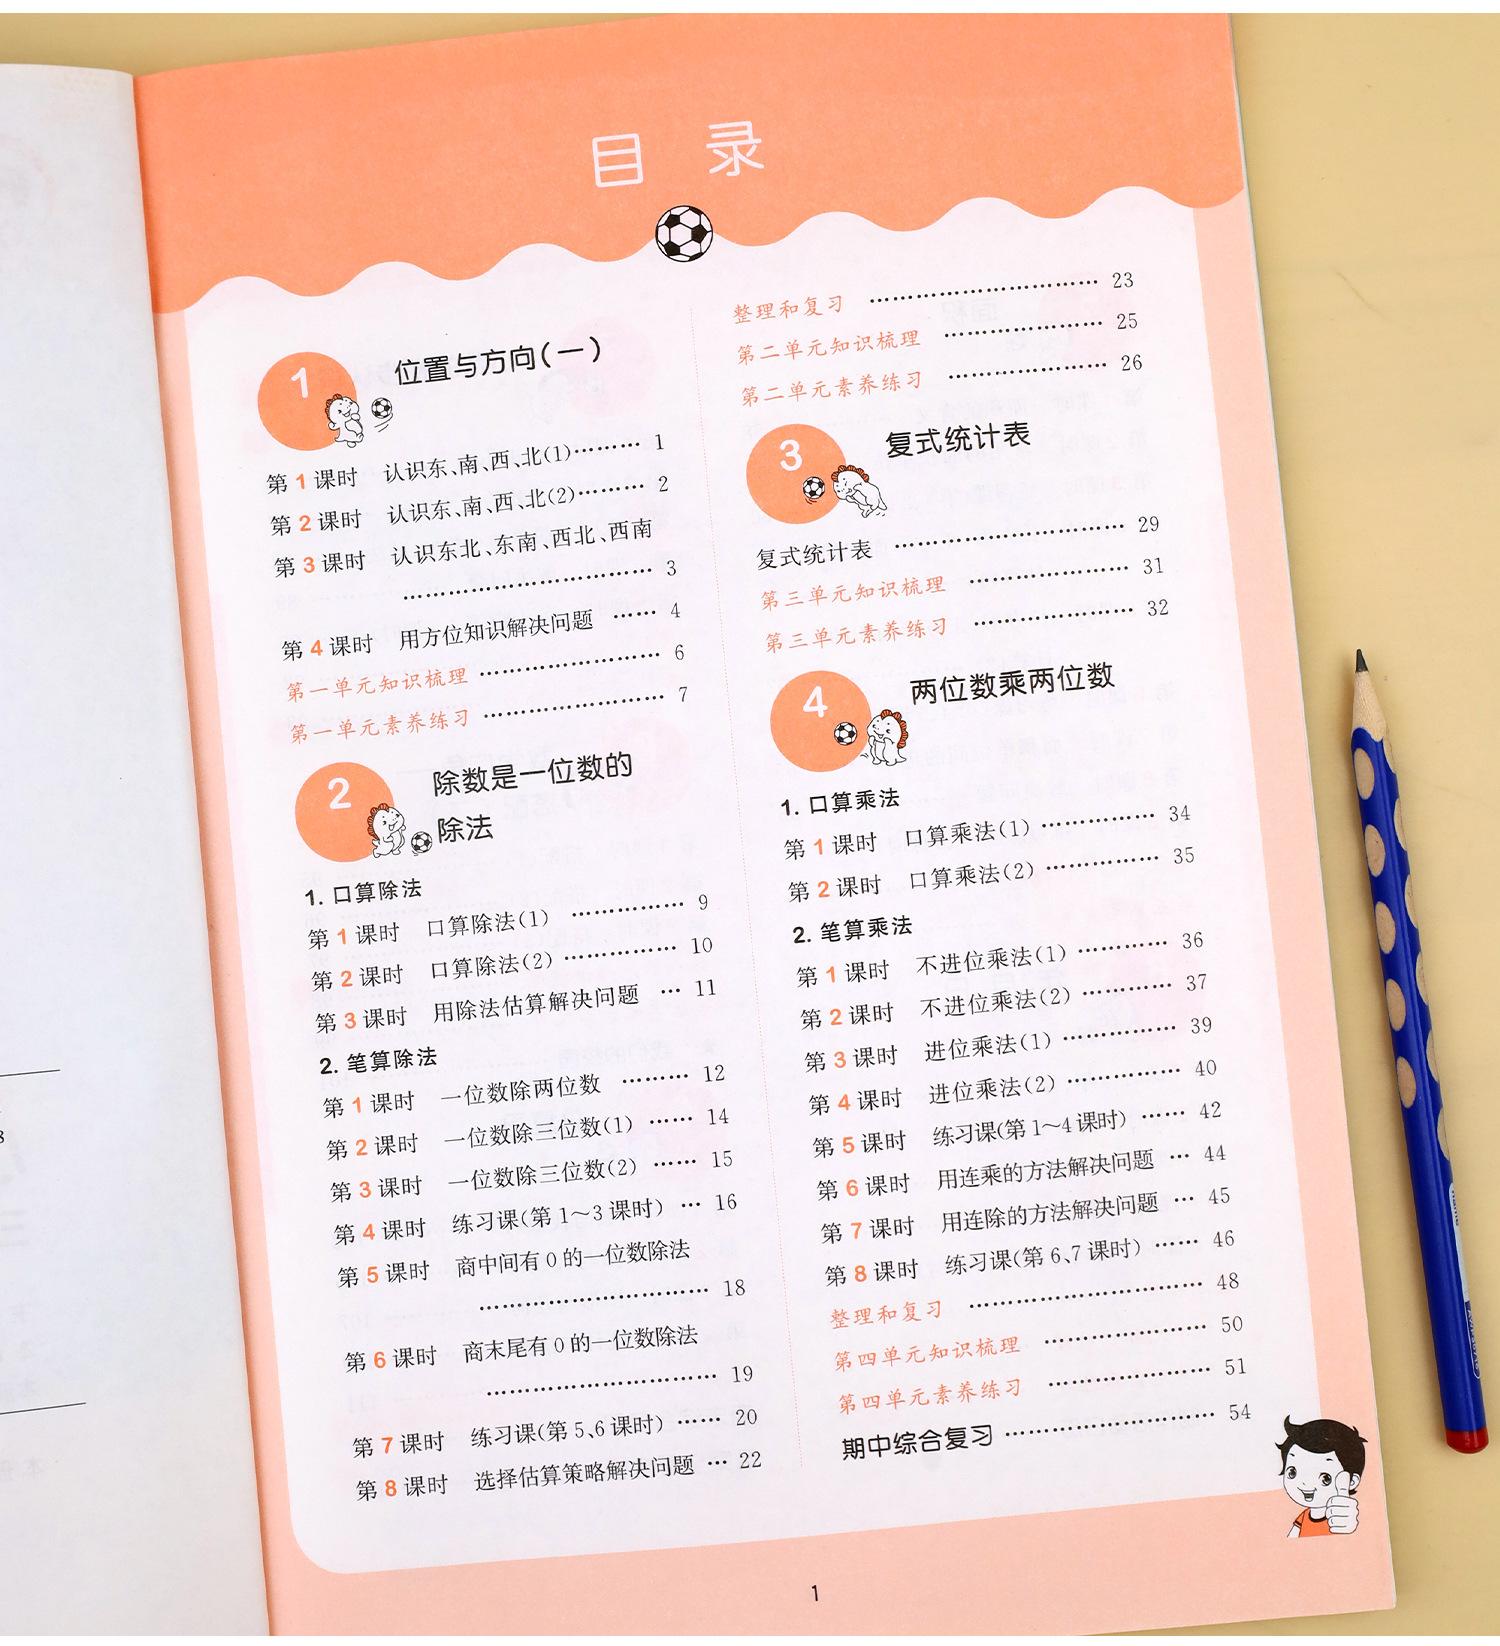 目 录
1 位置与方向(一)
第1课时 认识东、南、西、北(1)……… 1
第2课时 认识东、南、西、北(2)……… 2
第3课时 认识东北、东南、西北、西南
………………………… 3
第4课时 用方位知识解决问题 …… 4
第一单元知识梳理 ………………… 6
第一单元素养练习 ………………… 7
2 除数是一位数的
除法
1. 口算除法
第1课时 口算除法(1) …………… 9
第2课时 口算除法(2) …………… 10
第3课时 用除法估算解决问题 … 11
2. 笔算除法
第1课时 一位数除两位数 ……… 12
第2课时 一位数除三位数(1) …… 14
第3课时 一位数除三位数(2) …… 15
第4课时 练习课(第1～3课时) … 16
第5课时 商中间有0的一位数除法
………………………… 18
第6课时 商末尾有0的一位数除法
………………………… 19
第7课时 练习课(第5、6课时) …… 20
第8课时 选择估算策略解决问题 … 22
整理和复习 ………………………… 23
第二单元知识梳理 ………………… 25
第二单元素养练习 ………………… 26
3 复式统计表
复式统计表 ………………………… 29
第三单元知识梳理 ………………… 31
第三单元素养练习 ………………… 32
4 两位数乘两位数
1. 口算乘法
第1课时 口算乘法(1) …………… 34
第2课时 口算乘法(2) …………… 35
2. 笔算乘法
第1课时 不进位乘法(1) ………… 36
第2课时 不进位乘法(2) ………… 37
第3课时 进位乘法(1) …………… 39
第4课时 进位乘法(2) …………… 40
第5课时 练习课(第1～4课时) …… 42
第6课时 用连乘的方法解决问题 … 44
第7课时 用连除的方法解决问题 … 45
第8课时 练习课(第6、7课时) …… 46
整理和复习 ………………………… 48
第四单元知识梳理 ………………… 50
第四单元素养练习 ………………… 51
期中综合复习 ……………………… 54
1